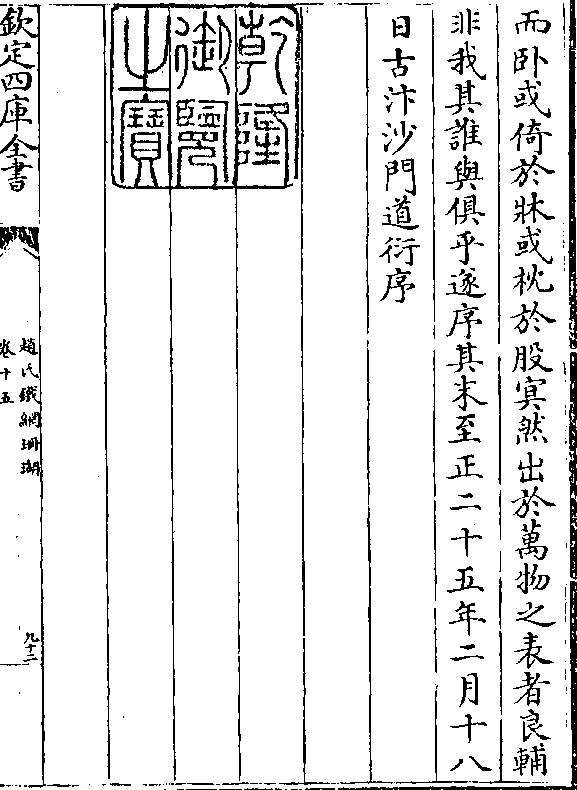 而卧或倚於牀或枕於股寘然出於萬物之表者良輔
非我其誰與俱乎遂序其末至正二十五年二月十八
日古汴沙門道衍序
乾隆
御覽
之寶
欽定四庫全書
趙氏鐵網珊瑚
卷十五
九十二